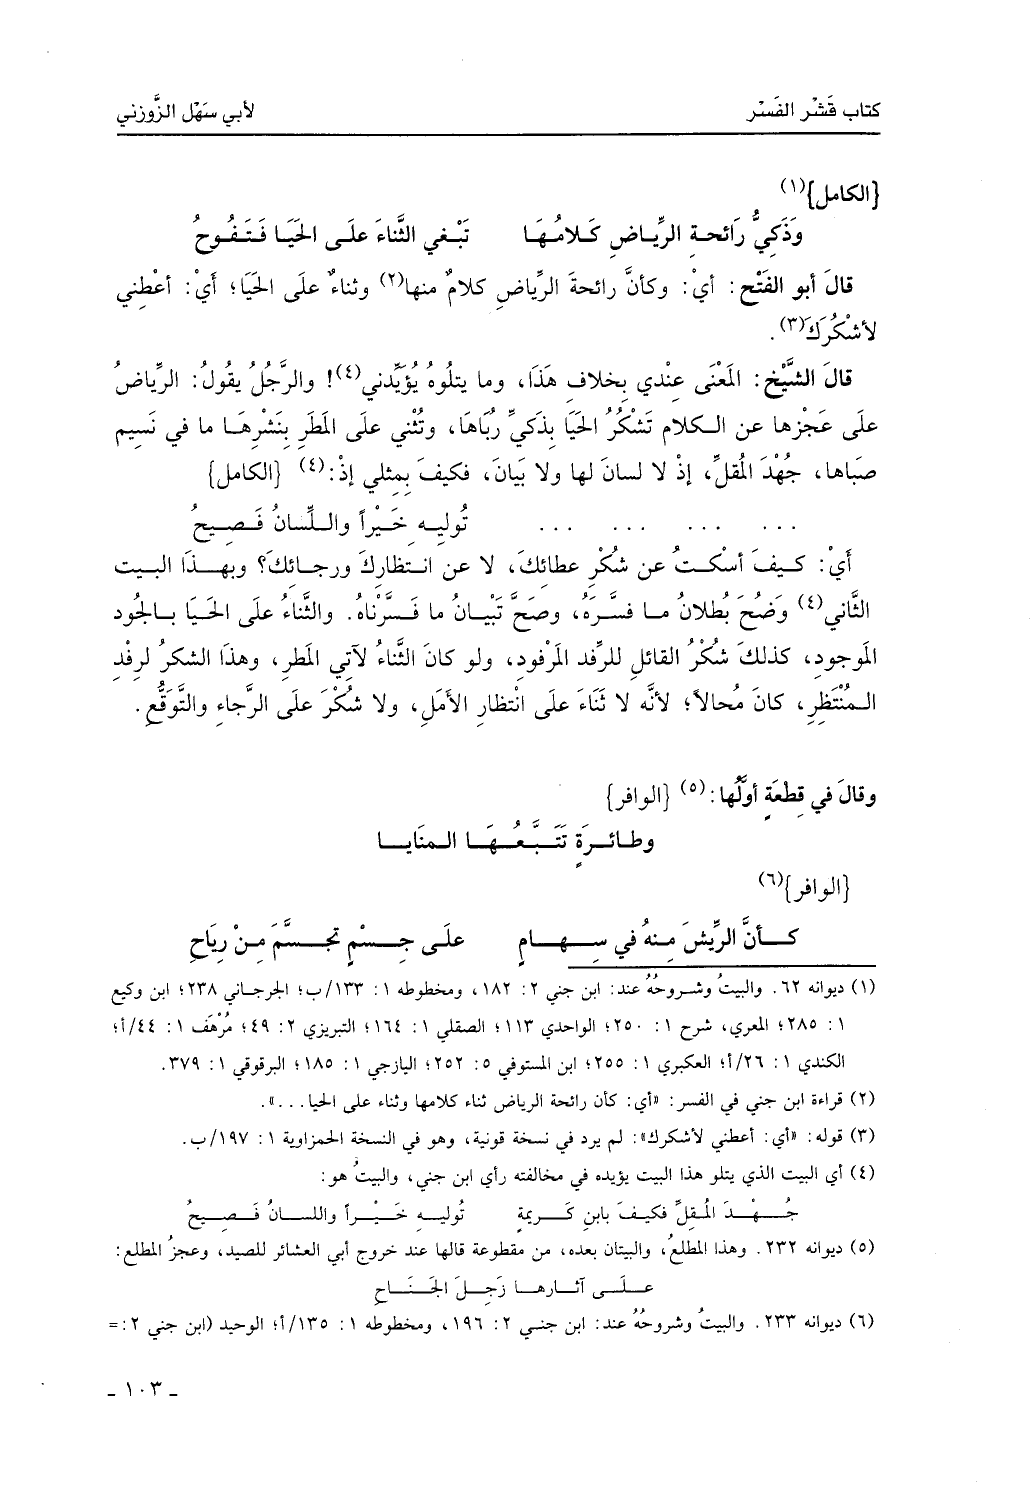 كتاب قَشْر الفَسْر لأبي سَهْل الزَّوْزني
{الكامل}(١)
وَذَكِيُّ رَائحةِ الرِّياضِ كَلامُهَا تَبْغي الثَّناءَ علَى الحَيَا فَتَفُوحُ
قالَ أبو الفَتْح: أيْ: وكأنَّ رائحةَ الرِّياضِ كلامٌ منها(٢) وثناءٌ علَى الحَيَا؛ أيْ: أعْطِني
لأشْكُرَكَ(٣).
قالَ الشَّيْخ: المَعْنَى عِنْدي بِخلافِ هَذَا، وما يتلُوهُ يُؤيِّدني(٤)! والرَّجُلُ يقُولُ: الرِّياضُ
علَى عَجْزها عن الكلام تَشْكُرُ الحَيَا بذَكيِّ رُبَاهَا، وتُثْني علَى المَطَرِ بِنَشْرِهَا ما في نَسيم
صَبَاها، جُهْدَ المُقلِّ، إذْ لا لسانَ لها ولا بَيَانَ، فكيفَ بِمثلي إذْ:(٤) {الكامل}
... ... ... ... تُوليهِ خَيْراً واللِّسانُ فَصِيحُ
أيْ: كيفَ أسْكتُ عن شُكْرِ عطائكَ، لا عن انتظاركَ ورجائكَ؟ وبهذَا البيت
الثَّاني(٤) وَضُحَ بُطلانُ ما فسَّرَهُ، وصَحَّ تَبْيانُ ما فَسَّرْناهُ. والثَّناءُ علَى الحَيَا بالجُود
المَوجودِ، كذلكَ شُكْرُ القائلِ للرِّفد المَرْفودِ، ولو كانَ الثَّناءُ لآتي المَطرِ، وهذَا الشكرُ لرِفْد
المُنْتَظِرِ، كانَ مُحالاً؛ لأنَّه لا ثَنَاءَ علَى انْتظارِ الأمَلِ، ولا شُكْرَ علَى الرَّجاءِ والتَّوَقُّعِ.
وقالَ في قِطعَةٍ أوَّلُها:(٥) {الوافر}
وطائرَةٍ تَتَبَّعُهَا المنَايا
{الوافر}(٦)
كأنَّ الرِّيشَ مِنهُ في سِهامٍ علَى جِسْمٍ تجسَّمَ مِنْ رِيَاحِ
(١) ديوانه ٦٢. والبيتُ وشروحُهُ عند: ابن جني ٢: ١٨٢، ومخطوطه ١: ١٣٣/ب؛ الجرجاني ٢٣٨؛ ابن وكيع
١: ٢٨٥؛ المعري، شرح ١: ٢٥٠؛ الواحدي ١١٣؛ الصقلي ١: ١٦٤؛ التبريزي ٢: ٤٩؛ مُرْهَف ١: ٤٤/أ؛
الكندي ١: ٢٦/أ؛ العكبري ١: ٢٥٥؛ ابن المستوفي ٥: ٢٥٢؛ اليازجي ١: ١٨٥؛ البرقوقي ١: ٣٧٩.
(٢) قراءة ابن جني في الفسر: «أي: كأن رائحة الرياض ثناء كلامها وثناء على الحيا...».
(٣) قوله: «أي: أعطني لأشكرك»: لم يرد في نسخة قونية، وهو في النسخة الحمزاوية ١: ١٩٧/ب.
(٤) أي البيت الذي يتلو هذا البيت يؤيده في مخالفته رأي ابن جني، والبيتُ هو:
جُهْدَ المُقلِّ فكيفَ بابنِ كَريمةٍ تُوليهِ خَيْراً واللسانُ فَصِيحُ
(٥) ديوانه ٢٣٢. وهذا المطلعُ، والبيتان بعده، من مقطوعة قالها عند خروج أبي العشائر للصيد، وعجزُ المطلع:
علَى آثارها زَجِلَ الجَنَاحِ
(٦) ديوانه ٢٣٣. والبيتُ وشروحُهُ عند: ابن جني ٢: ١٩٦، ومخطوطه ١: ١٣٥/أ؛ الوحيد (ابن جني ٢: =
ـ ١٠٣ ـ